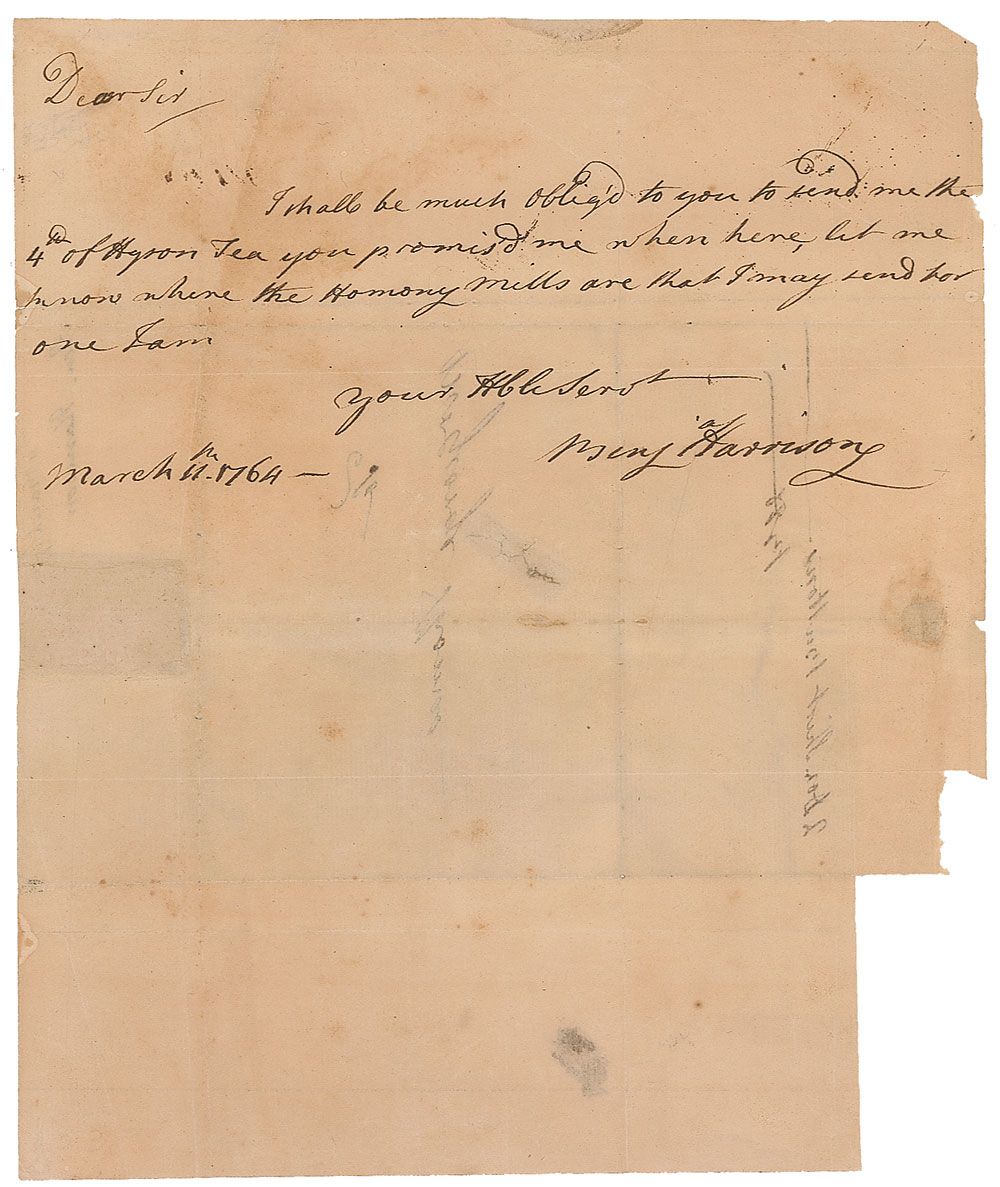 Dear Sir
I shall be much Oblig'd to you to send me the
4th of Hyson Tea you promis'd me when here, let me
know where the Homony Mills are that I may send for
one I am
your Hble Servt
Benja Harrison
March 11th. 1764 —